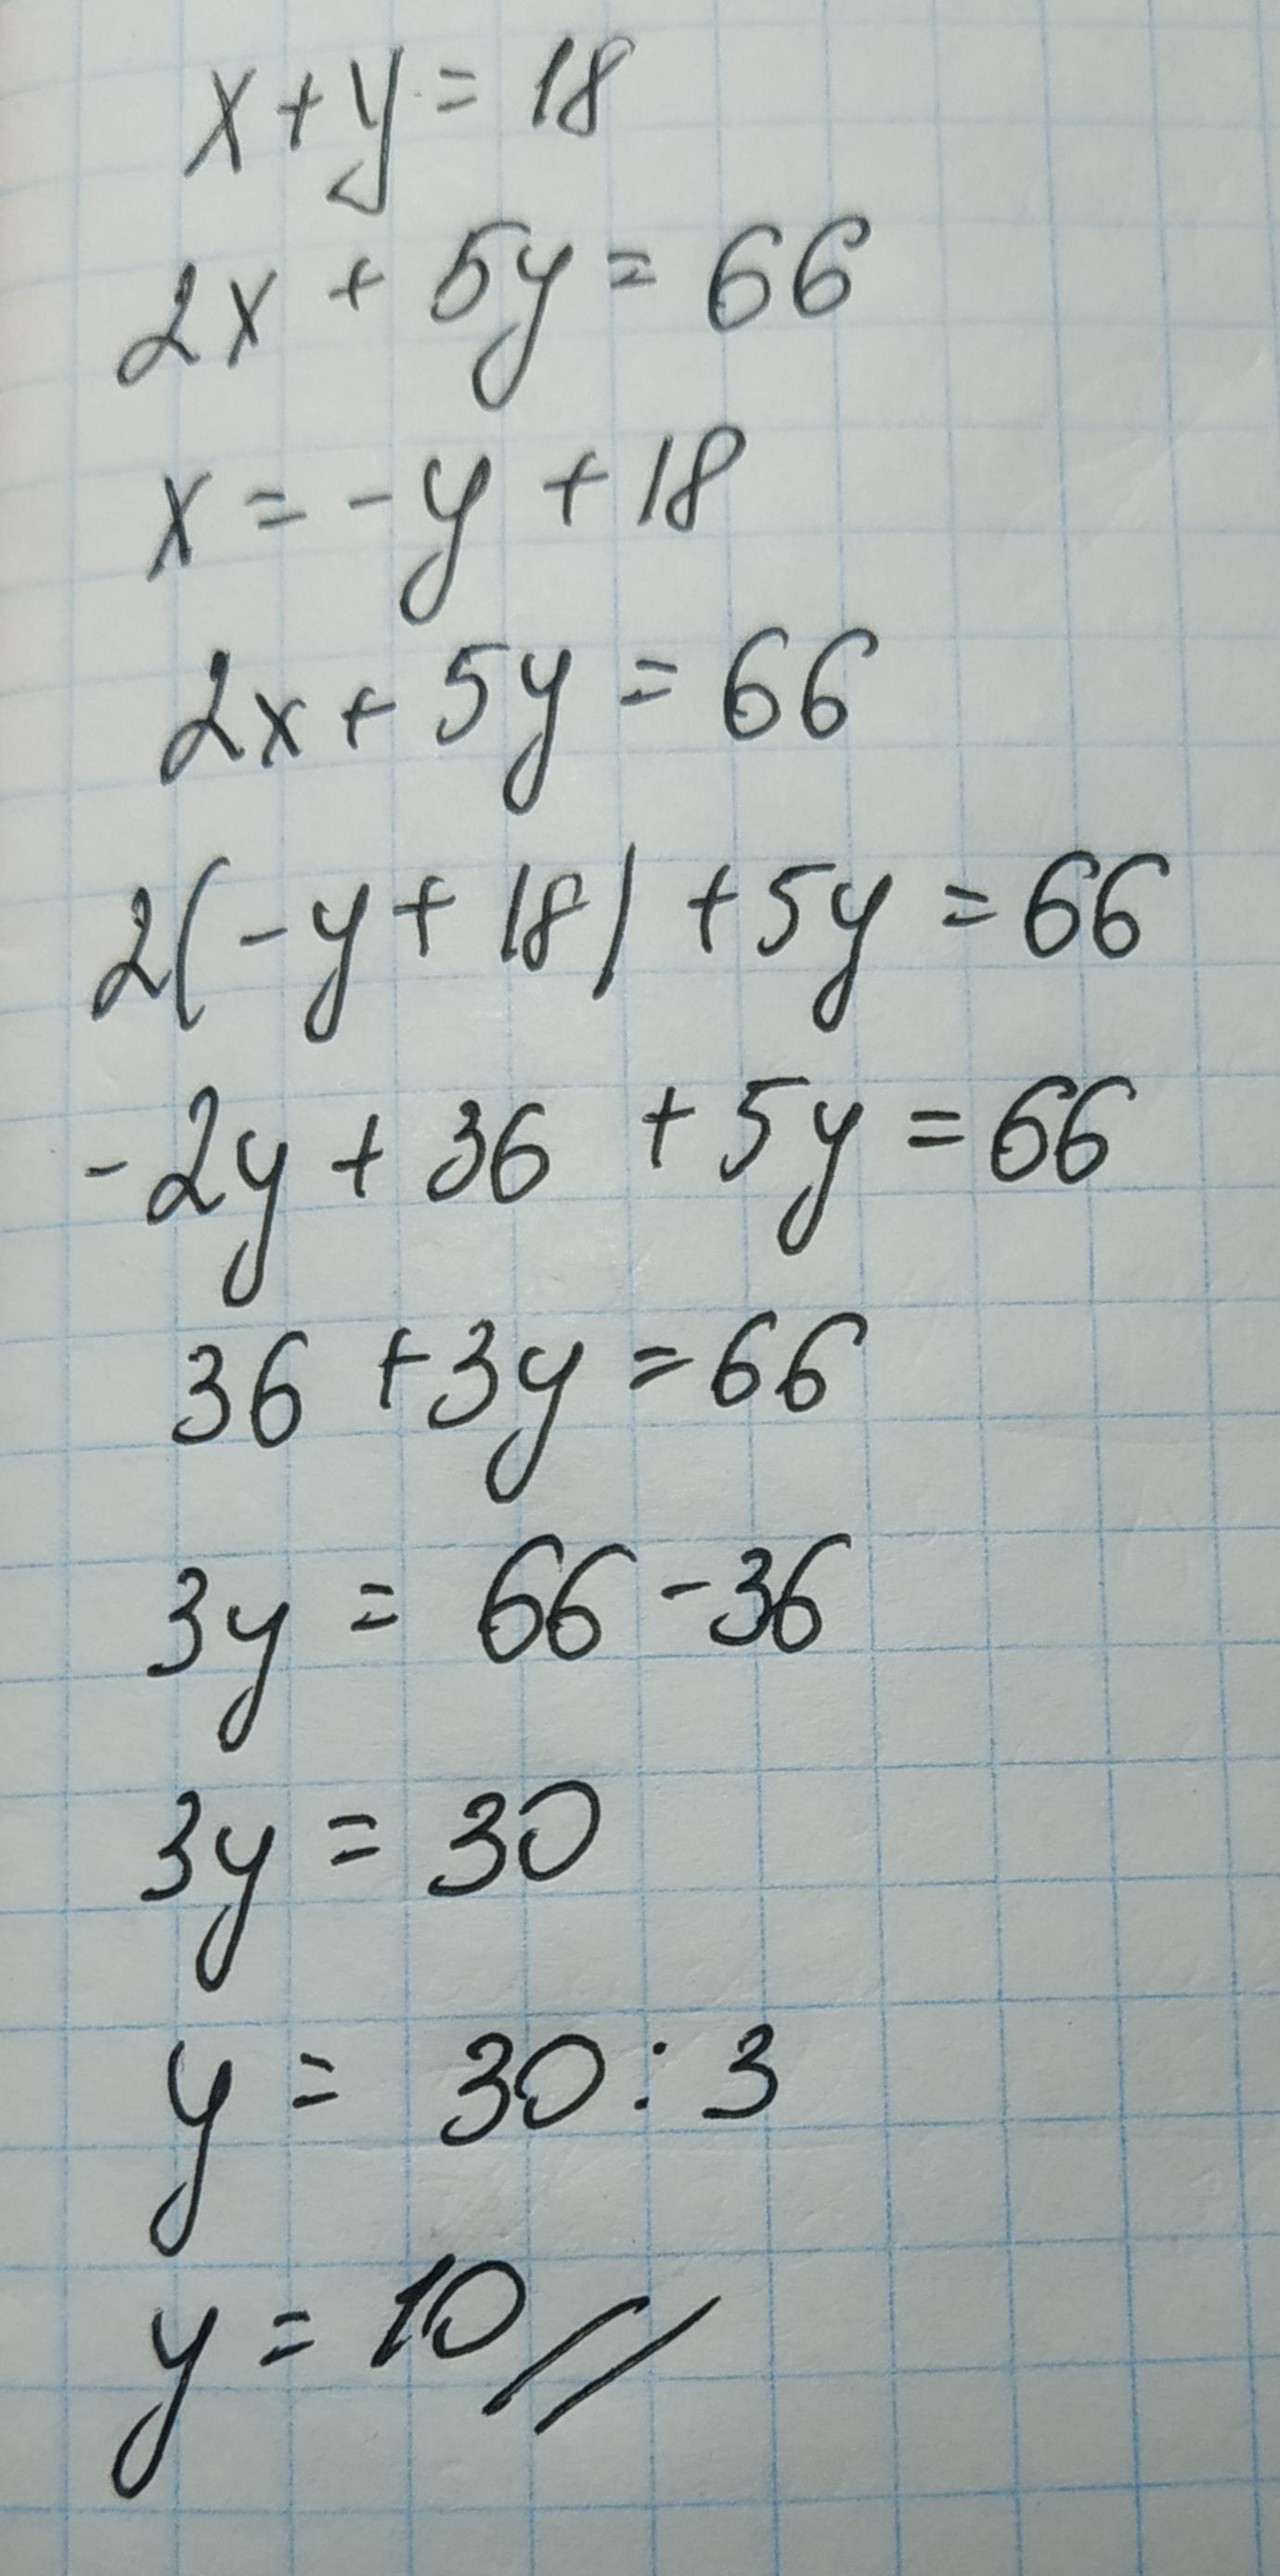 x + y = 18
2x + 5y = 66
x = - y + 18
2x + 5y = 66
2(- y + 18) + 5y = 66
- 2y + 36 + 5y = 66
36 + 3y = 66
3y = 66 - 36
3y = 30
y = 30 : 3
y = 10 //